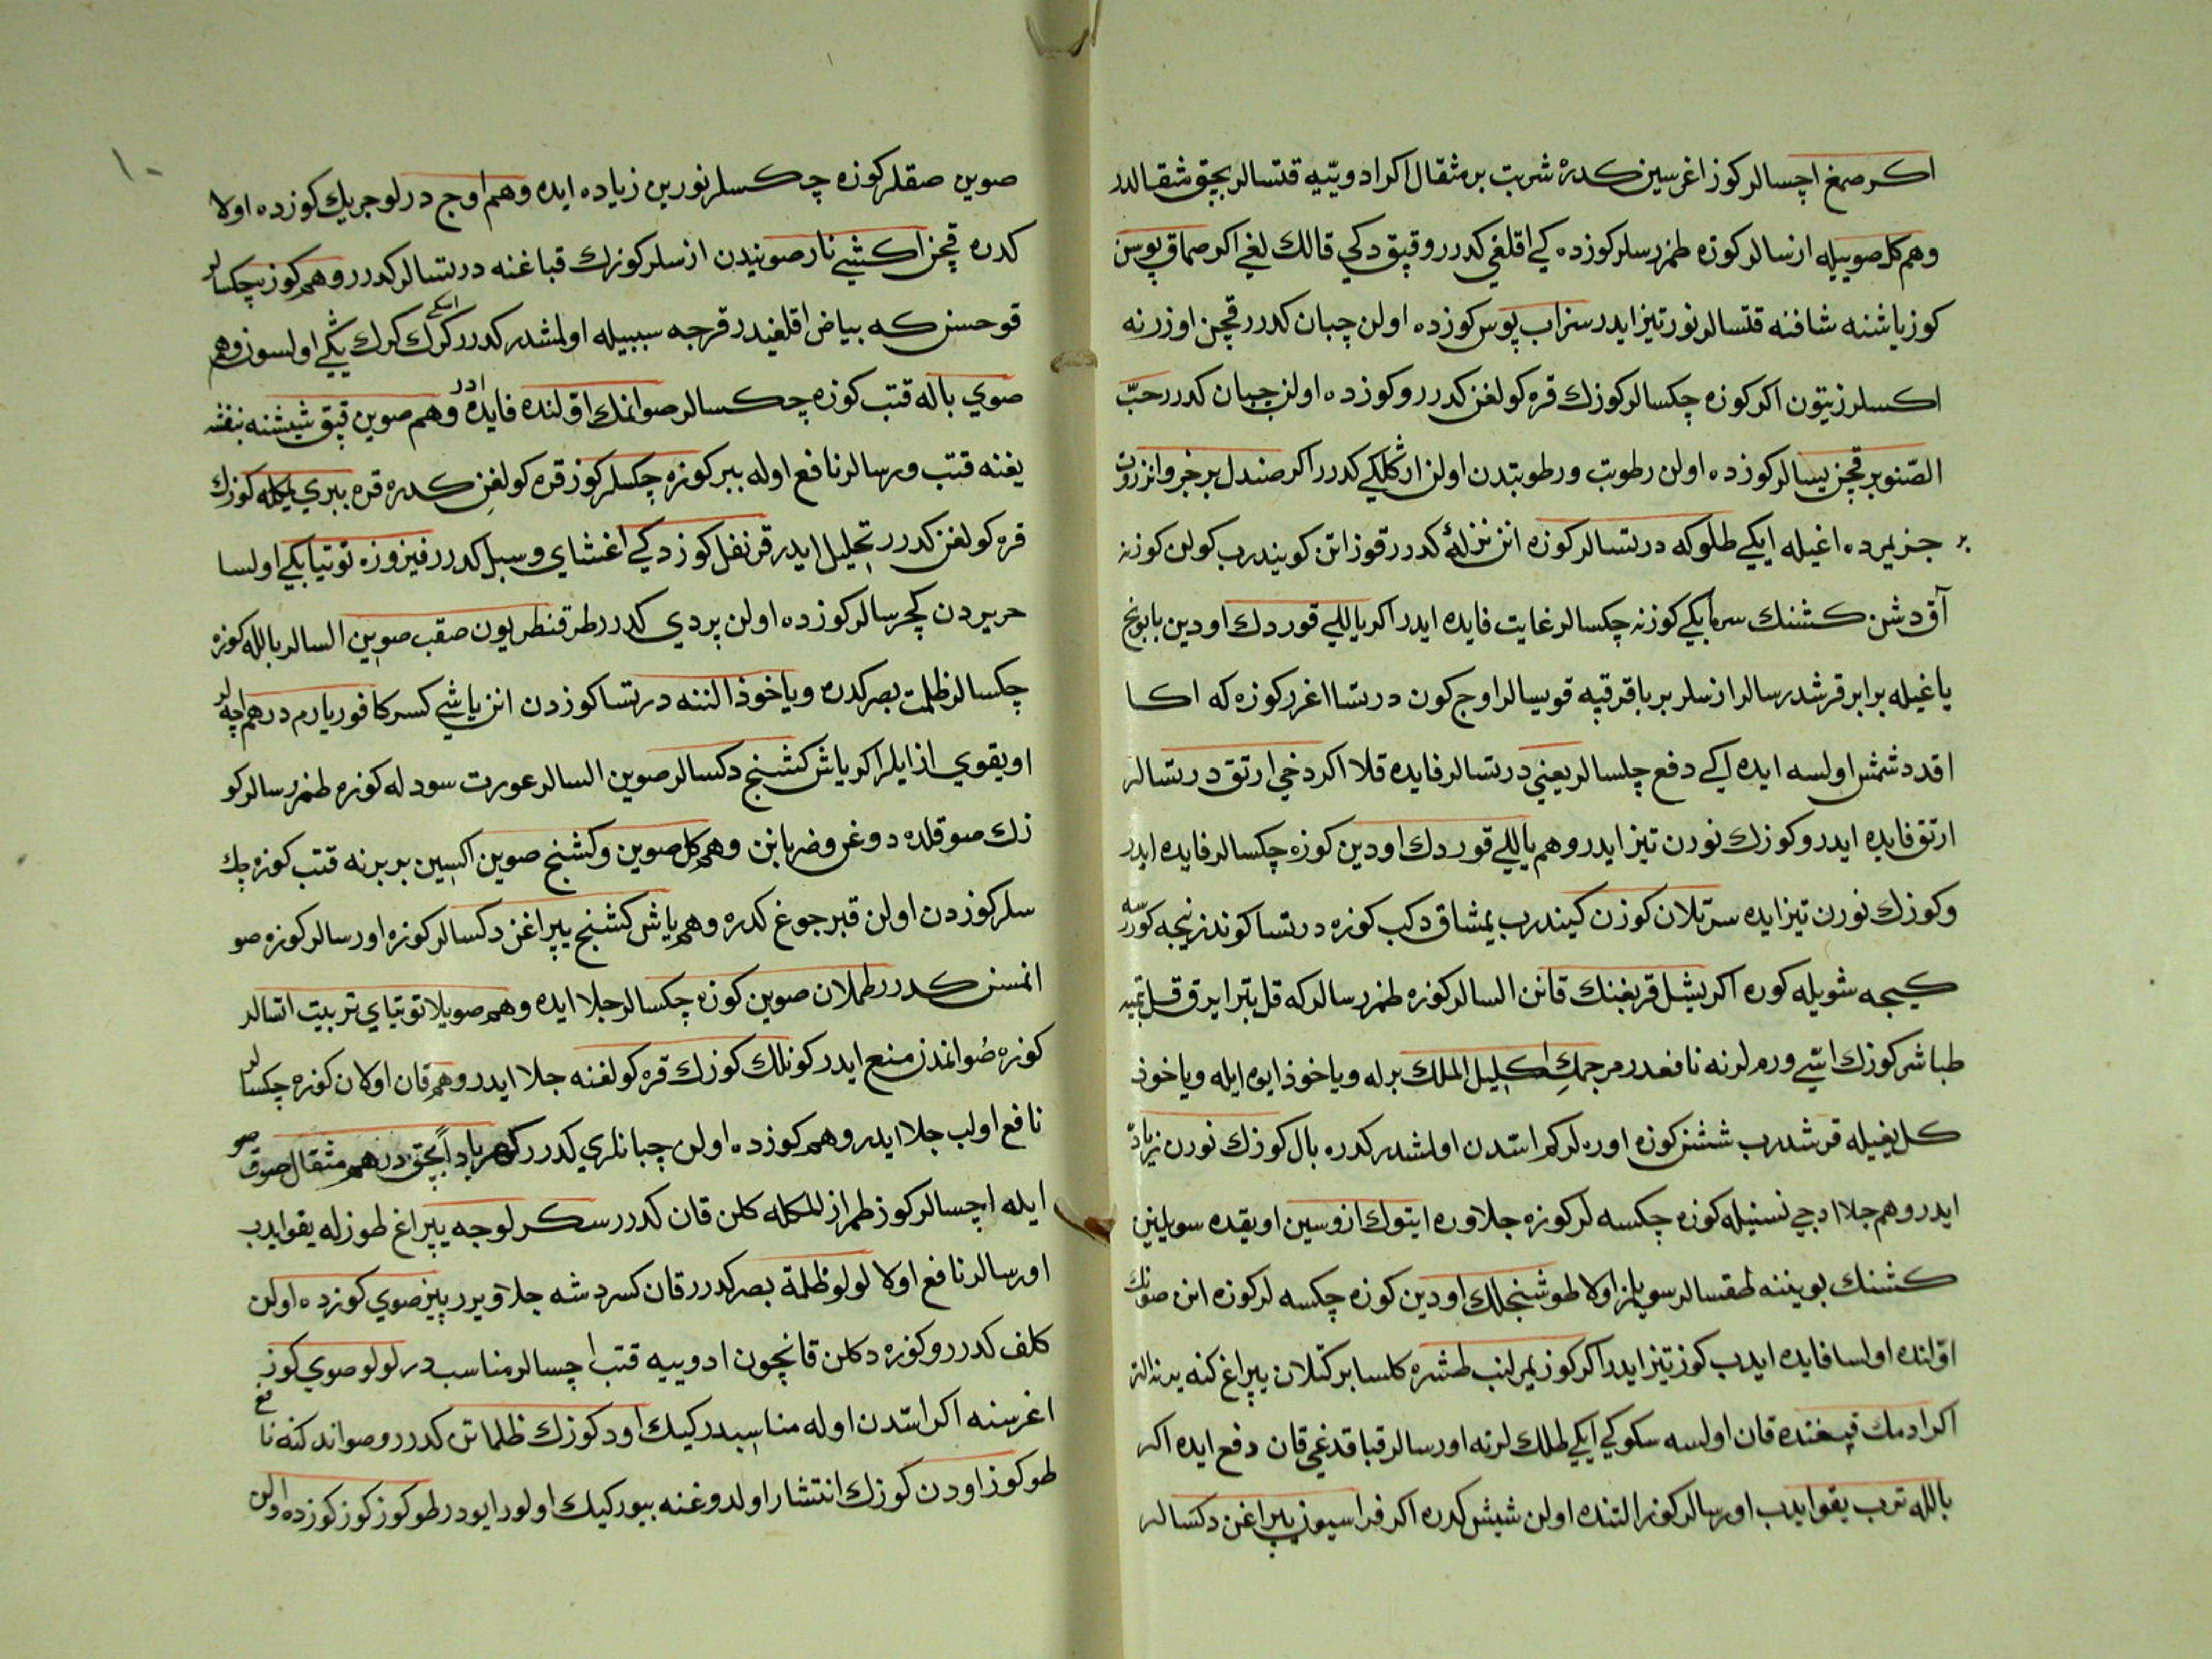 اكر صمغ اچسالر كوز اغرسين كدره شربت بر مثقال اكر ادويّيه قتسالر بچق مثقالدر
وهم كل صوييله ازسالر كوزه طمزرسلر كوزده كي اقلغي كدرر و قپق دكي قالك لغي اكر صماق پوسن
كوز ياشنه شافنه قتسالر نور تيز ايدر سنراب پوس كوزده اولن چبان كدرر قچن اوزرنه
اكسلر زيتون اكر كوزه چكسالر كوزك قره كولغن كدرر و كوزده اولن چبان كدرر حبّ
الصّنوبر قچن يسالر كوزده اولن رطوبت و رطوبتدن اولن ارڭلكي كدرر اكر صندل بر خبر وانزروت
بر جزيمرده اغيله ايكي طلوكه درتسالر كوزه انن نزلهٔ كدرر قوز اتن كويندرب كولن كوزنه
آق دشن كشنك سرمابكي كوزنه چكسالر غايت فايده ايدر اكر ياللي قوردك اودين بابونج
ياغيله برابر قرشدرسالر ازسلر بر باقر قپه قويسالر اوج كون درتسا اغرر كوزه كه اكا
اقدد شمش اولسه ايده اكي دفع چلسالر يعني درتسالر فايده قلا اكر دخي ارتق درتسالر
ارتق فايده ايدر و كوزك نورن تيز ايدر وهم ياللي قوردك اودين كوزه چكسالر فايده ايدر
و كوزك نورن تيز ايده سرتلان كوزن كيندرب يمشاق دكب كوزه درتسا كوندز نيجه كوررسه
كيجه شويله كوره اكر يشل قربغنك قانن السالر كوزه طمزرسالر كه قل بتر ايرق قل بتميه
طباشر كوزك اتسّي ورملرنه نافعدر مرجمك اكليل الملك برله و ياخوذ ايوه ايله و ياخوذ
كل يغيله قرشدرب ششن كوزه اوره لركم استدن اولشدر كدره بال كوزك نورن زياد
ايدر وهم جلا ادجي نسنيله كوزه چكسه لر كوزه جلا وره ايتوك ازوسين اويقده سويلين
كشنك بويننه طقسالر سويلمز اولا طوشنجلك اودين كوزه چكسه لر كوزه انن صونك
اوّلنده اولسا فايده ايدب كوز تيز ايدر اكر كوز يمرلنب طشره كلسا بر كتلان يپراغ كنه يرنه الته
اكر ادمك قپغنده قان اولسه سكوكي ايكي طلك لرنه اورسالر قباقدغي قان دفع ايده اكر
بالله ترب يقو ايدب اورسالر كوز التنده اولن شيش كدره اكر فراسيون يپراغن دكسالر
صوين صقلر كوزه چكسلر نورين زياده ايده وهم اوج درلو جربك كوزده اولا
كدره قچن اكشي نار صوينيدن ازسلر كوزك قباغنه درتسالر كدرر وهم كوز چكسالر
قوحسنكه بياض اقلغيدر قرجه سببيله اولمشدر كدرر كرك اسكي كرك يڭي اولسون وهم
صوي باله قتب كوزه چكسالر صو انمك اوّلنده فايده ادر وهم صوين قپق شيشنه بنفشه
يغنه قتب ورسالر نافع اوله ببر كوزه چكسلر كوز قره كولغن كدره قره ببري يلكله كوزك
قره كولغن كدرر تحليل ايدر قرنفل كوزدكي اغشاي و سبل كدرر فيزوزه توتيابكي اولسا
حريردن كچرسالر كوزده اولن پردي كدرر طرقنطريون صقب صوين السالر بالله كوزه
چكسالر ظلمت بصر كدره و ياخوذ الننه درتسا كوزدن انن ياشي كسر كافور يارم درهم اچسه لر
اويقوي از ايلر اكر ياش كشنج دكسالر صوين السالر عورت سودله كوزه طمزرسالر كو
زك صوقلده دوغن و ضربانن وهم كل صوين و كشنج صوين اكسين بر برنه قتب كوزه چك
سلر كوزدن اولن قبرجوغ كدره وهم ياش كشنج يپراغن دكسالر كوزه اورسالر كوزه صو
انمسن كدرر طملان صوين كوزه چكسالر جلا ايده وهم صويلا توتياي تربيت اتسالر
كوزه صو انمدن منع ايدر كونلك كوزك قره كولغنه جلا ايدر وهم قان اولان كوزه چكسالر
نافع اولب جلا ايدر وهم كوزده اولن چبانلري كدرر كهربا دا بچق درهم مثقال صوق صو
ايله اچسالر كوز طمرازلمكله كلن قان كدرر سكرلوجه يپراغ طوزله يقو ايدب
اورسالر نافع اولا لولو ظلمة بصر كدرر قان كسر دشه جلا ويرر پينر صوي كوزده اولن
كلف كدرر و كوزه دكلن قانچون ادوييه قتب اچسالر مناسبدر لولو صوي كوز
اغرسنه اكر استدن اوله مناسبدر كيك اود كوزك ظلماتن كدرر و صو اندكنه نافع
طوكوز اودن كوزك انتشار اولدوغنه بيورركيك اولورايودر طوكوز كوز كوزده اولن